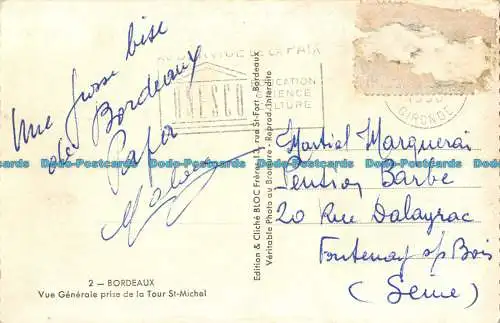 Une grosse bise
de Bordeaux
Papa
AU SERVICE DE LA PAIX
UNESCO
EDUCATION
SCIENCE
CULTURE
1958
GIRONDE
Martial Marquerai
Pension Barbe
20 Rue Dalayrac
Fontenay s/s Bois
(Seine)
Edition & Cliché BLOC Frères, 11, rue St-Fort - Bordeaux
Véritable Photo au Bromure - Reprod. Interdite
2 — BORDEAUX
Vue Générale prise de la Tour St-Michel
Dodo-Postcards Dodo-Postcards Dodo-Postcards Dodo-Postcards Dodo-Postcards Dodo-Postcards Dodo-Postcards